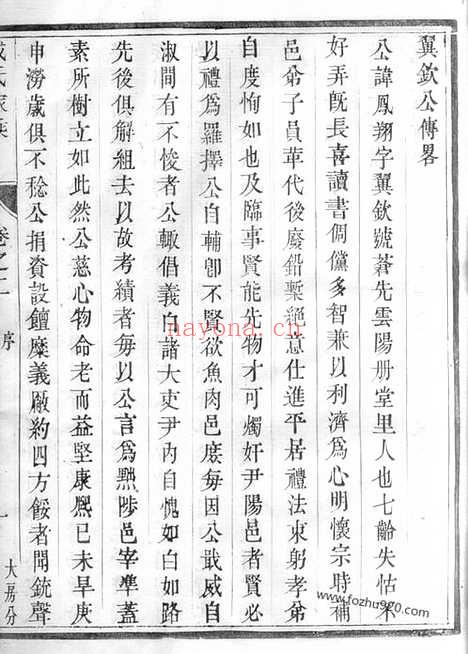 翼欽公傳畧
公諱鳳翔字翼欽號蒼先雲陽册堂里人也七齡失怙不
好弄旣長喜讀書倜儻多智兼以利濟爲心明懷宗時補
邑弟子員革代後廢鉛槧絕意仕進平居禮法束躬孝弟
自度恂如也及臨事賢能先物才可燭奸尹陽邑者賢必
以禮爲羅擇公自輔卽不賢欲魚肉邑庶每因公戢威自
淑間有不悛者公輙倡義白諸大吏尹內自愧如白如路
先後俱解組去以故考績者每以公言爲黜陟邑宰準蓋
素所樹立如此然公慈心物命老而益堅康熈己未旱庚
申澇歲俱不稔公捐資設饘糜義厰約四方餒者聞銃聲
氏家乘
卷之二
序
一
大房分
nayona.cn
www.fozhu920.com